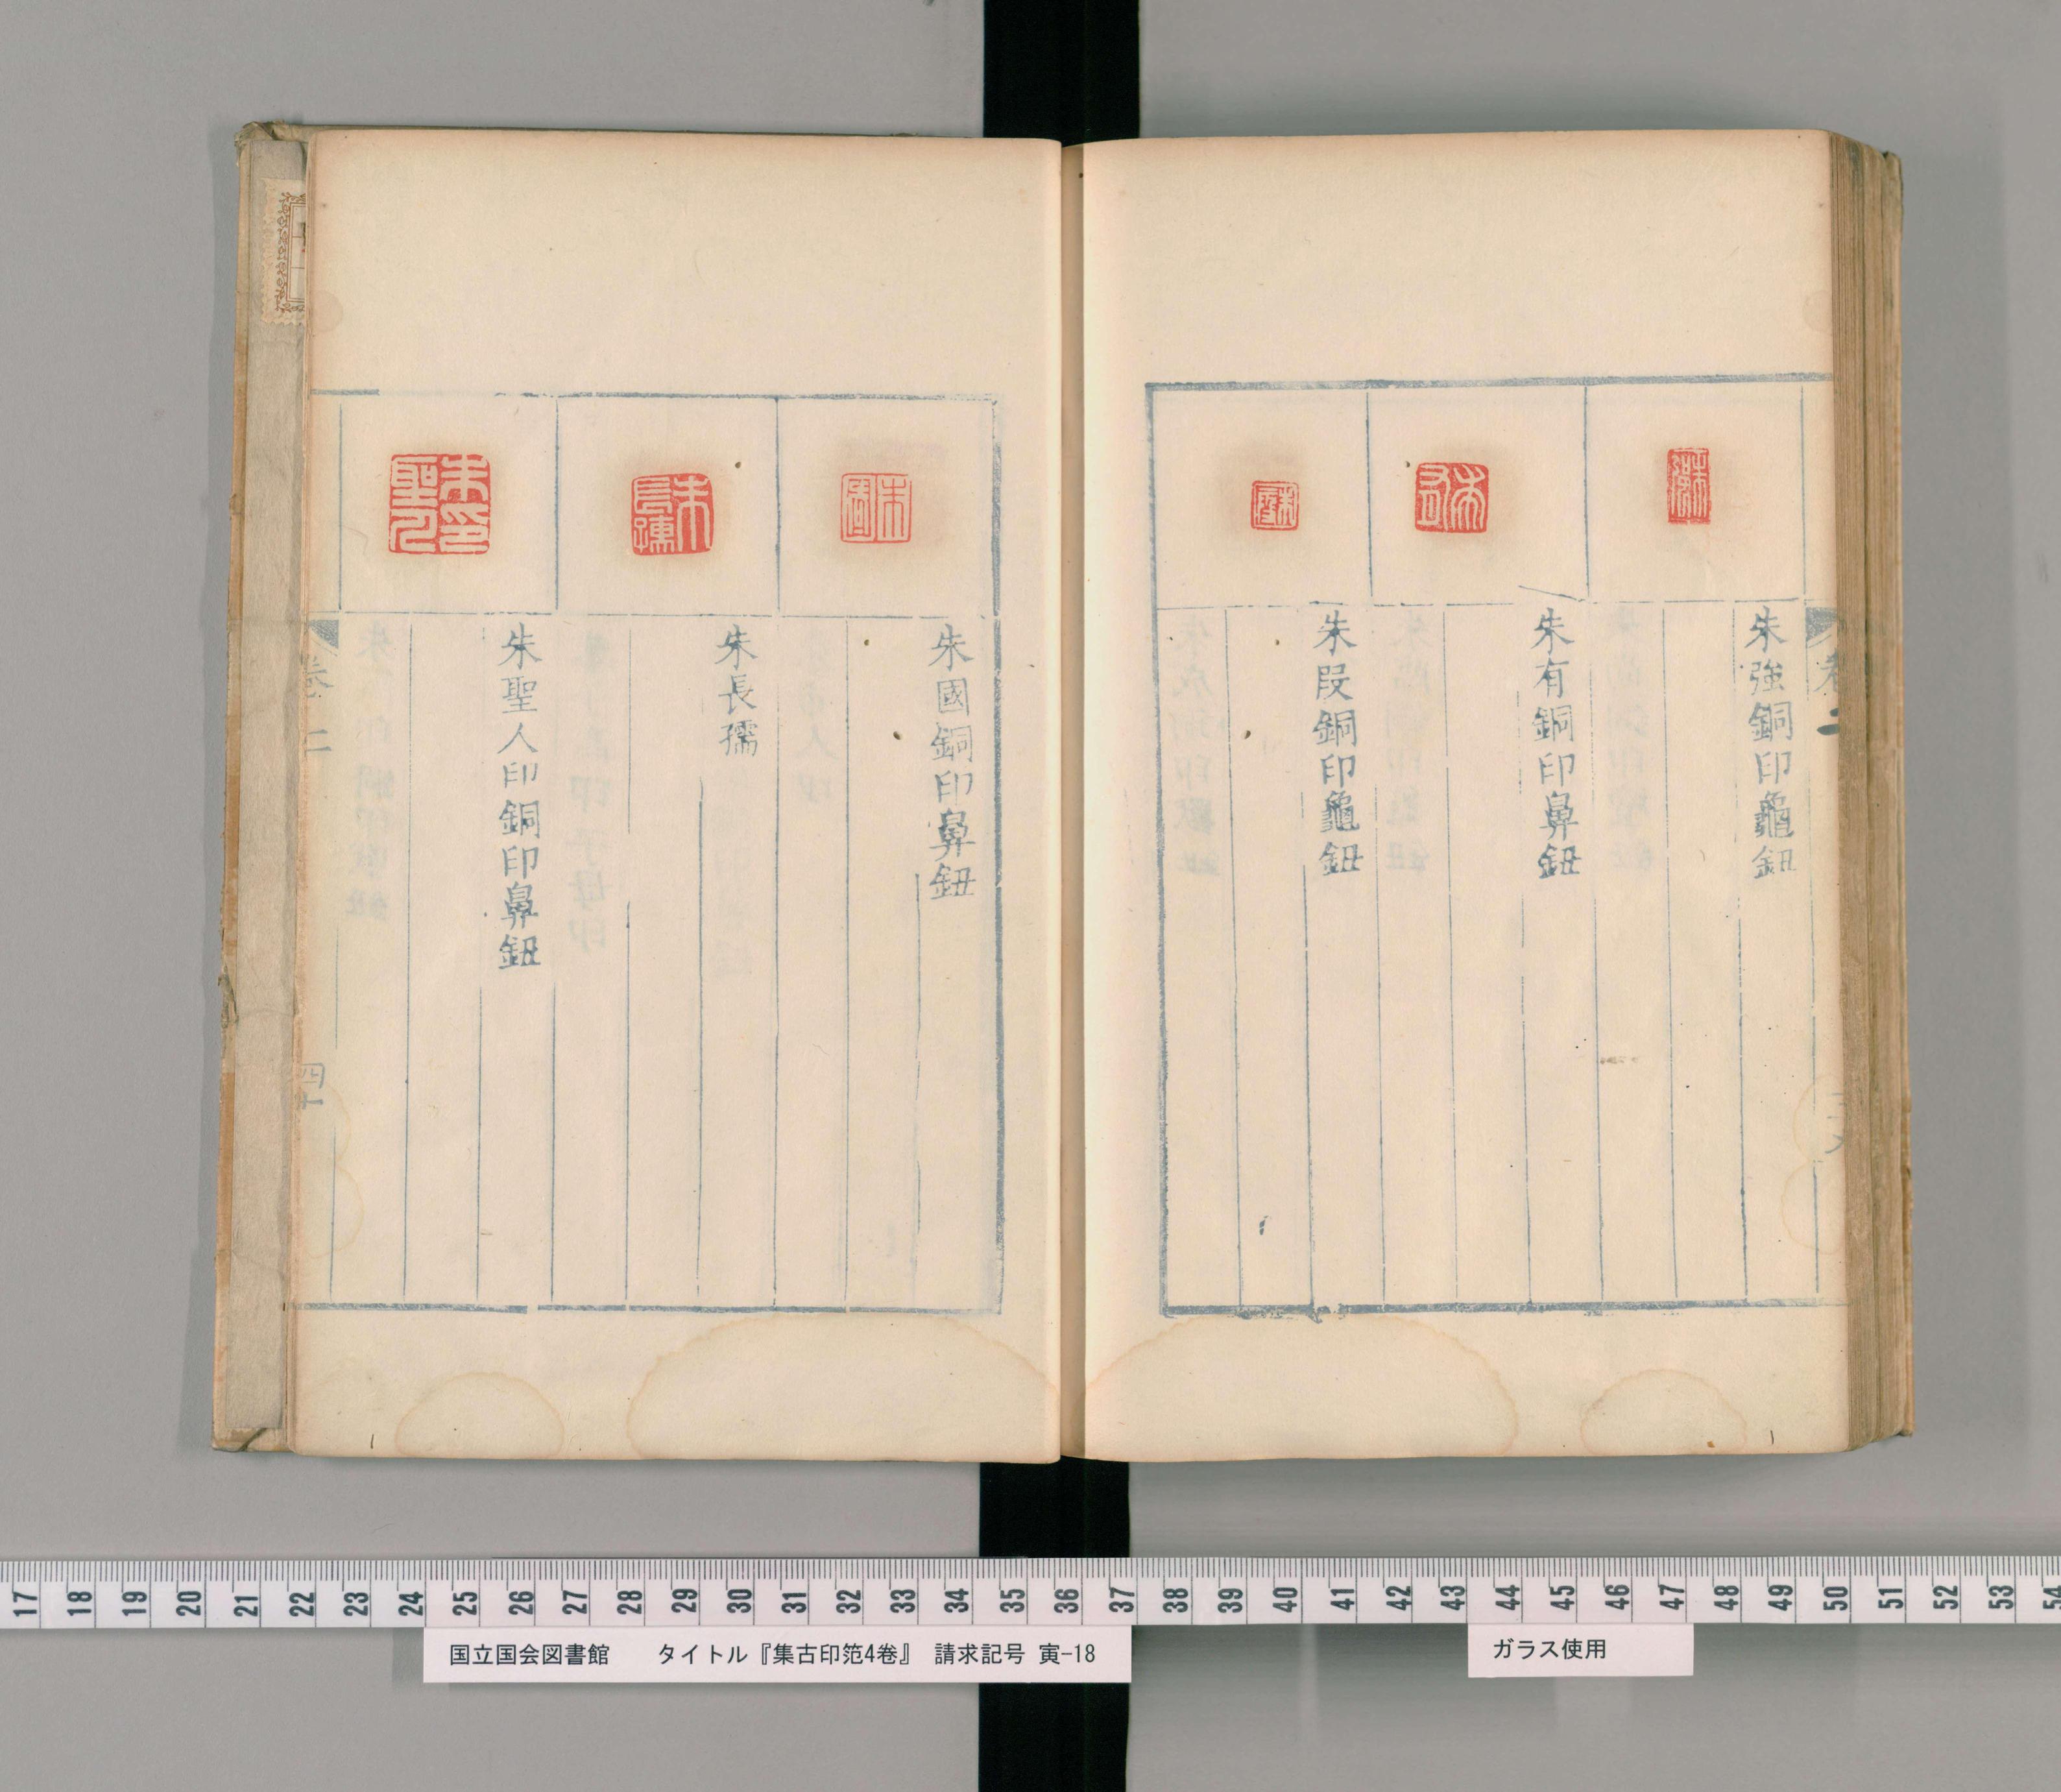 卷二
朱強銅印龜鈕
朱有銅印鼻鈕
朱段銅印龜鈕
朱國銅印鼻鈕
朱長孺
朱聖人印銅印鼻鈕
卷二
四十
17 18 19 20 21 22 23 24 25 26 27 28 29 30 31 32 33 34 35 36 37 38 39 40 41 42 43 44 45 46 47 48 49 50 51 52 53 54
国立国会図書館 タイトル『集古印笵4巻』 請求記号 寅-18
ガラス使用